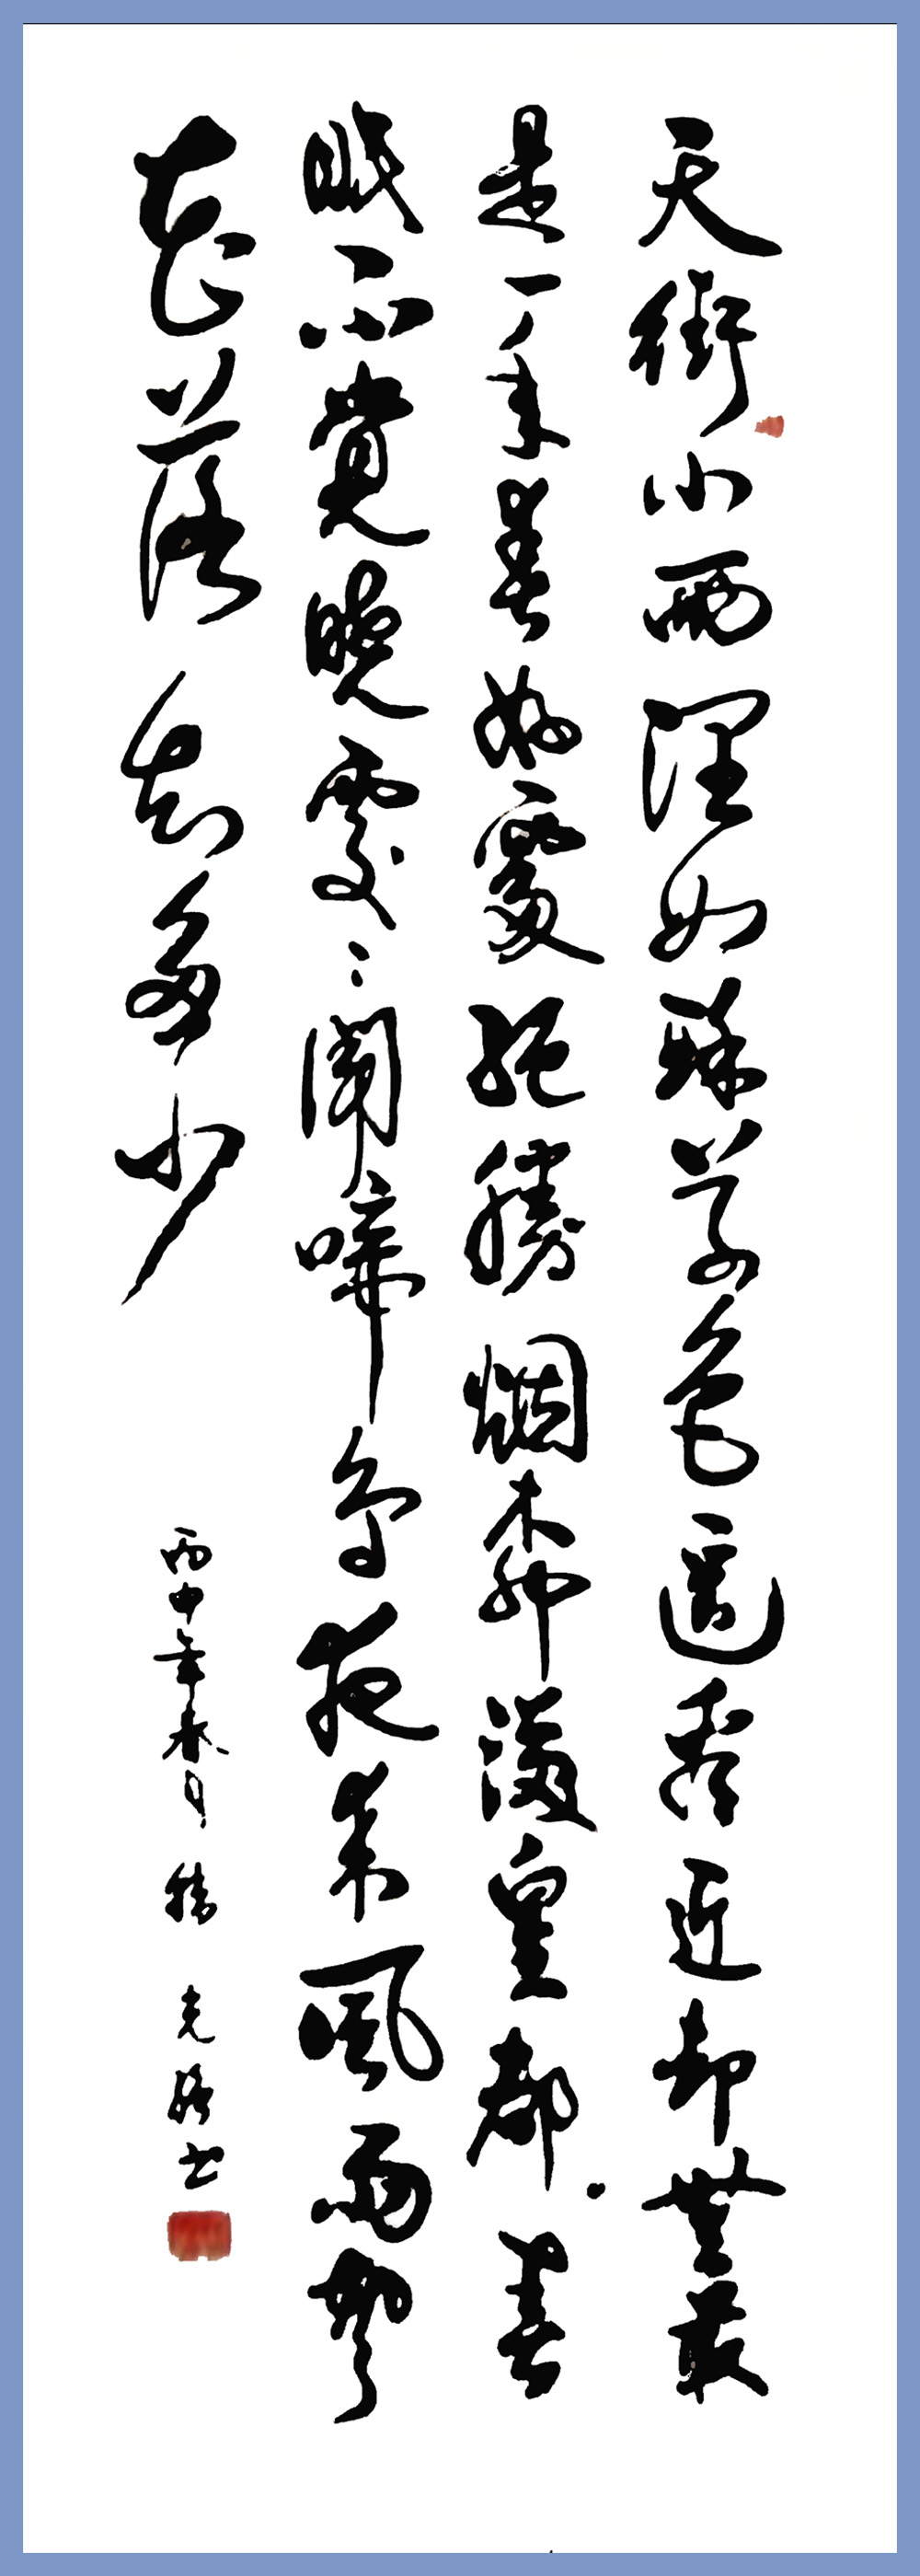 天街小雨润如酥草色遥看近却無最
是一年春好處絕勝烟柳滿皇都春
眠不覺曉處々聞啼鳥夜来風雨聲
花落知多少
丙申年春月
书